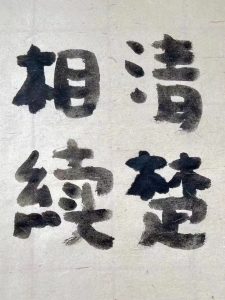 清楚
相续